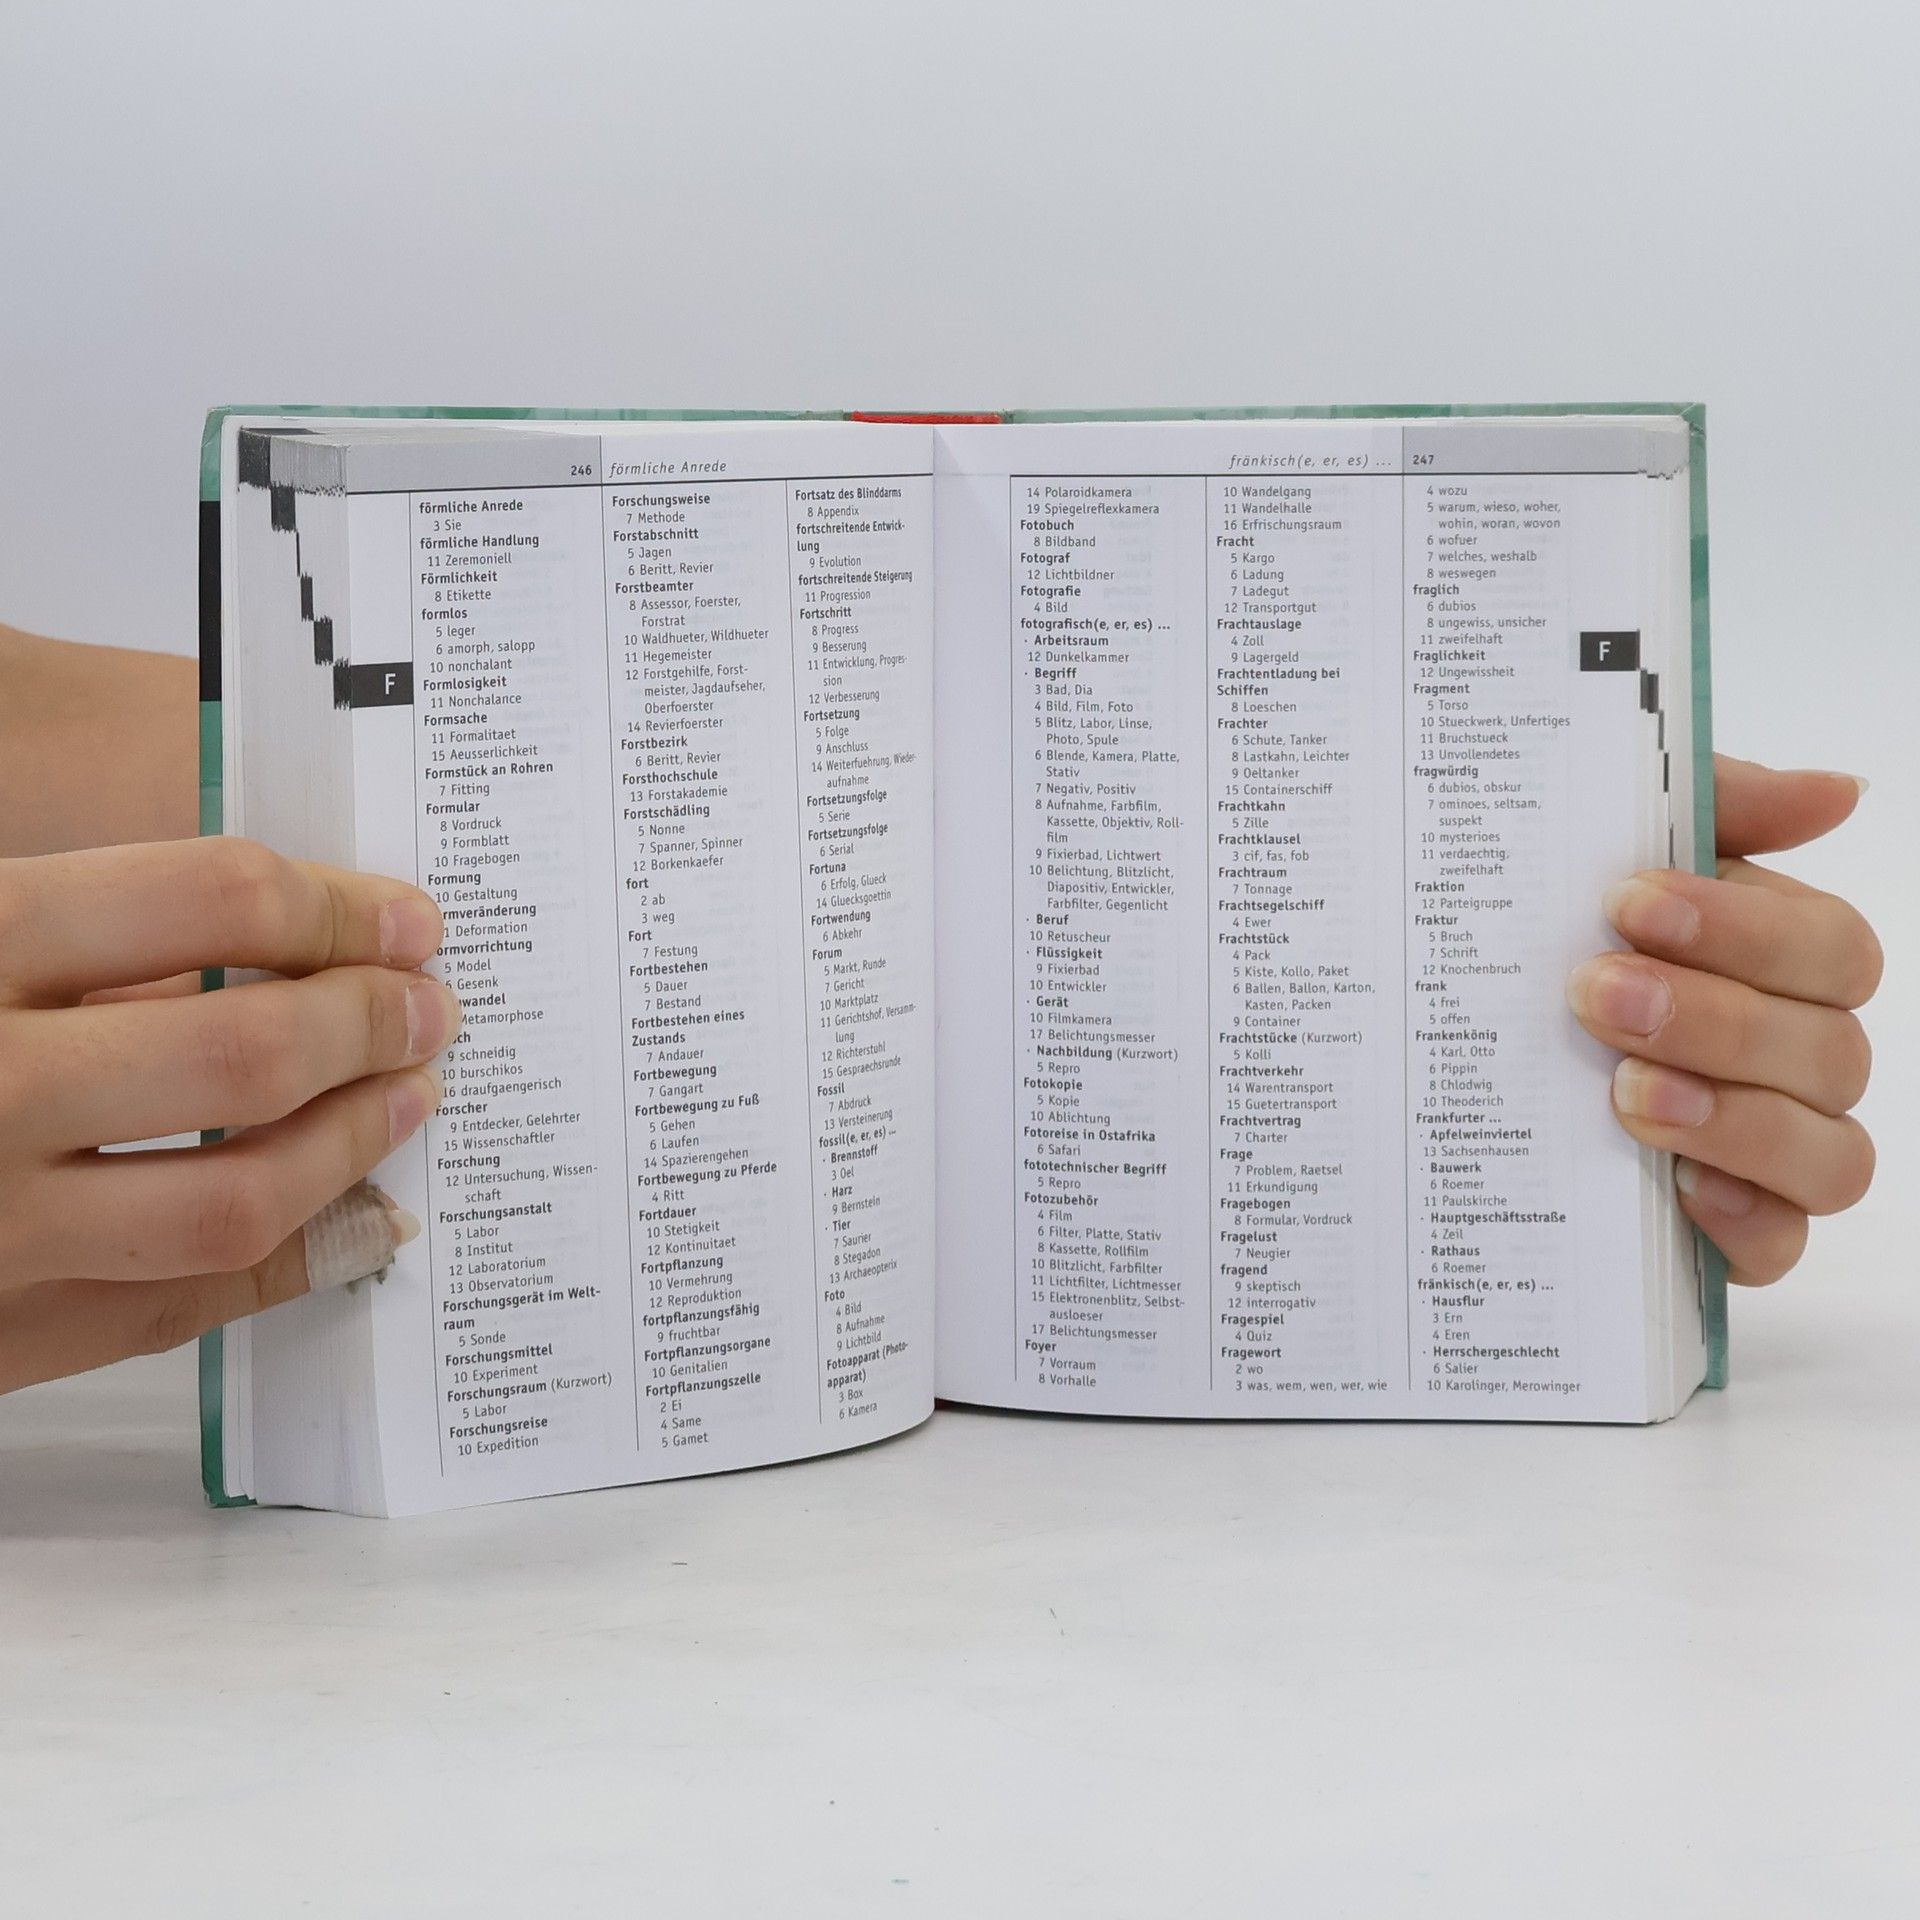 246 förmliche Anrede
förmliche Anrede
3 Sie
förmliche Handlung
11 Zeremoniell
Förmlichkeit
8 Etikette
formlos
5 leger
6 amorph, salopp
10 nonchalant
Formlosigkeit
11 Nonchalance
Formsache
11 Formalitaet
15 Aeusserlichkeit
Formstück an Rohren
7 Fitting
Formular
8 Vordruck
9 Formblatt
10 Fragebogen
Formung
10 Gestaltung
rmveränderung
1 Deformation
ormvorrichtung
5 Model
6 Gesenk
wandel
Metamorphose
sch
9 schneidig
10 burschikos
16 draufgaengerisch
Forscher
9 Entdecker, Gelehrter
15 Wissenschaftler
Forschung
12 Untersuchung, Wissen-
schaft
Forschungsanstalt
5 Labor
8 Institut
12 Laboratorium
13 Observatorium
Forschungsgerät im Welt-
raum
5 Sonde
Forschungsmittel
10 Experiment
Forschungsraum (Kurzwort)
5 Labor
Forschungsreise
10 Expedition
Forschungsweise
7 Methode
Forstabschnitt
5 Jagen
6 Beritt, Revier
Forstbeamter
8 Assessor, Foerster,
Forstrat
10 Waldhueter, Wildhueter
11 Hegemeister
12 Forstgehilfe, Forst-
meister, Jagdaufseher,
Oberfoerster
14 Revierfoerster
Forstbezirk
6 Beritt, Revier
Forsthochschule
13 Forstakademie
Forstschädling
5 Nonne
7 Spanner, Spinner
12 Borkenkaefer
fort
2 ab
3 weg
Fort
7 Festung
Fortbestehen
5 Dauer
7 Bestand
Fortbestehen eines
Zustands
7 Andauer
Fortbewegung
7 Gangart
Fortbewegung zu Fuß
5 Gehen
6 Laufen
14 Spazierengehen
Fortbewegung zu Pferde
4 Ritt
Fortdauer
10 Stetigkeit
12 Kontinuitaet
Fortpflanzung
10 Vermehrung
12 Reproduktion
fortpflanzungsfähig
9 fruchtbar
Fortpflanzungsorgane
10 Genitalien
Fortpflanzungszelle
2 Ei
4 Same
5 Gamet
Fortsatz des Blinddarms
8 Appendix
fortschreitende Entwick-
lung
9 Evolution
fortschreitende Steigerung
11 Progression
Fortschritt
8 Progress
9 Besserung
11 Entwicklung, Progres-
sion
12 Verbesserung
Fortsetzung
5 Folge
9 Anschluss
14 Weiterfuehrung, Wieder-
aufnahme
Fortsetzungsfolge
5 Serie
Fortsetzungsfolge
6 Serial
Fortuna
6 Erfolg, Glueck
14 Gluecksgoettin
Fortwendung
6 Abkehr
Forum
5 Markt, Runde
7 Gericht
10 Marktplatz
11 Gerichtshof, Versamm-
lung
12 Richterstuhl
15 Gespraechsrunde
Fossil
7 Abdruck
13 Versteinerung
fossil(e, er, es) ...
· Brennstoff
3 Oel
· Harz
9 Bernstein
· Tier
7 Saurier
8 Stegadon
13 Archaeopterix
Foto
4 Bild
8 Aufnahme
9 Lichtbild
Fotoapparat (Photo-
apparat)
3 Box
6 Kamera
F
fränkisch(e, er, es) ... 247
14 Polaroidkamera
19 Spiegelreflexkamera
Fotobuch
8 Bildband
Fotograf
12 Lichtbildner
Fotografie
4 Bild
fotografisch(e, er, es) ...
· Arbeitsraum
12 Dunkelkammer
· Begriff
3 Bad, Dia
4 Bild, Film, Foto
5 Blitz, Labor, Linse,
Photo, Spule
6 Blende, Kamera, Platte,
Stativ
7 Negativ, Positiv
8 Aufnahme, Farbfilm,
Kassette, Objektiv, Roll-
film
9 Fixierbad, Lichtwert
10 Belichtung, Blitzlicht,
Diapositiv, Entwickler,
Farbfilter, Gegenlicht
· Beruf
10 Retuscheur
· Flüssigkeit
9 Fixierbad
10 Entwickler
· Gerät
10 Filmkamera
17 Belichtungsmesser
· Nachbildung (Kurzwort)
5 Repro
Fotokopie
5 Kopie
10 Ablichtung
Fotoreise in Ostafrika
6 Safari
fototechnischer Begriff
5 Repro
Fotozubehör
4 Film
6 Filter, Platte, Stativ
8 Kassette, Rollfilm
10 Blitzlicht, Farbfilter
11 Lichtfilter, Lichtmesser
15 Elektronenblitz, Selbst-
ausloeser
17 Belichtungsmesser
Foyer
7 Vorraum
8 Vorhalle
10 Wandelgang
11 Wandelhalle
16 Erfrischungsraum
Fracht
5 Kargo
6 Ladung
7 Ladegut
12 Transportgut
Frachtauslage
4 Zoll
9 Lagergeld
Frachtentladung bei
Schiffen
8 Loeschen
Frachter
6 Schute, Tanker
8 Lastkahn, Leichter
9 Oeltanker
15 Containerschiff
Frachtkahn
5 Zille
Frachtklausel
3 cif, fas, fob
Frachtraum
7 Tonnage
Frachtsegelschiff
4 Ewer
Frachtstück
4 Pack
5 Kiste, Kollo, Paket
6 Ballen, Ballon, Karton,
Kasten, Packen
9 Container
Frachtstücke (Kurzwort)
5 Kolli
Frachtverkehr
14 Warentransport
15 Guetertransport
Frachtvertrag
7 Charter
Frage
7 Problem, Raetsel
11 Erkundigung
Fragebogen
8 Formular, Vordruck
Fragelust
7 Neugier
fragend
9 skeptisch
12 interrogativ
Fragespiel
4 Quiz
Fragewort
2 wo
3 was, wem, wen, wer, wie
4 wozu
5 warum, wieso, woher,
wohin, woran, wovon
6 wofuer
7 welches, weshalb
8 weswegen
fraglich
6 dubios
8 ungewiss, unsicher
11 zweifelhaft
Fraglichkeit
12 Ungewissheit
Fragment
5 Torso
10 Stueckwerk, Unfertiges
11 Bruchstueck
13 Unvollendetes
fragwürdig
6 dubios, obskur
7 ominoes, seltsam,
suspekt
10 mysterioes
11 verdaechtig,
zweifelhaft
Fraktion
12 Parteigruppe
Fraktur
5 Bruch
7 Schrift
12 Knochenbruch
frank
4 frei
5 offen
Frankenkönig
4 Karl, Otto
6 Pippin
8 Chlodwig
10 Theoderich
Frankfurter ...
· Apfelweinviertel
13 Sachsenhausen
· Bauwerk
6 Roemer
11 Paulskirche
· Hauptgeschäftsstraße
4 Zeil
· Rathaus
6 Roemer
fränkisch(e, er, es) ...
· Hausflur
3 Ern
4 Eren
· Herrschergeschlecht
6 Salier
10 Karolinger, Merowinger
F